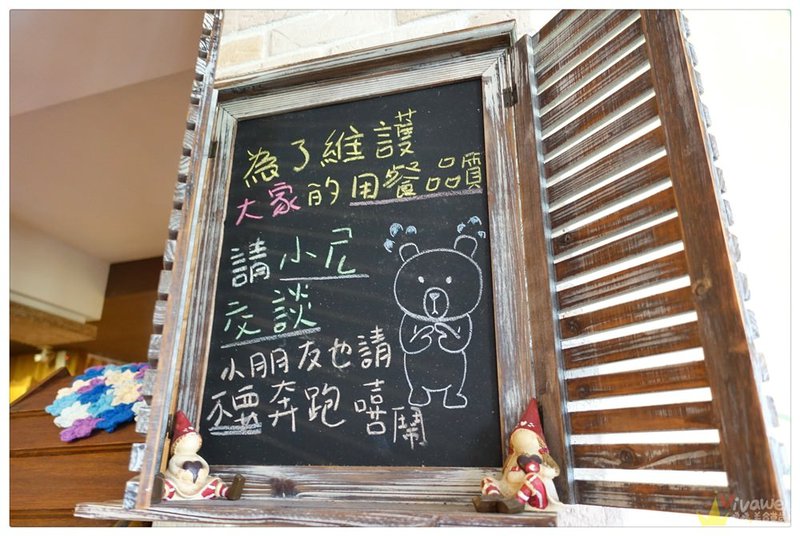 為了維護
大家的用餐品質
請小尼
交談
小朋友也請
不要奔跑嘻鬧
ivawe